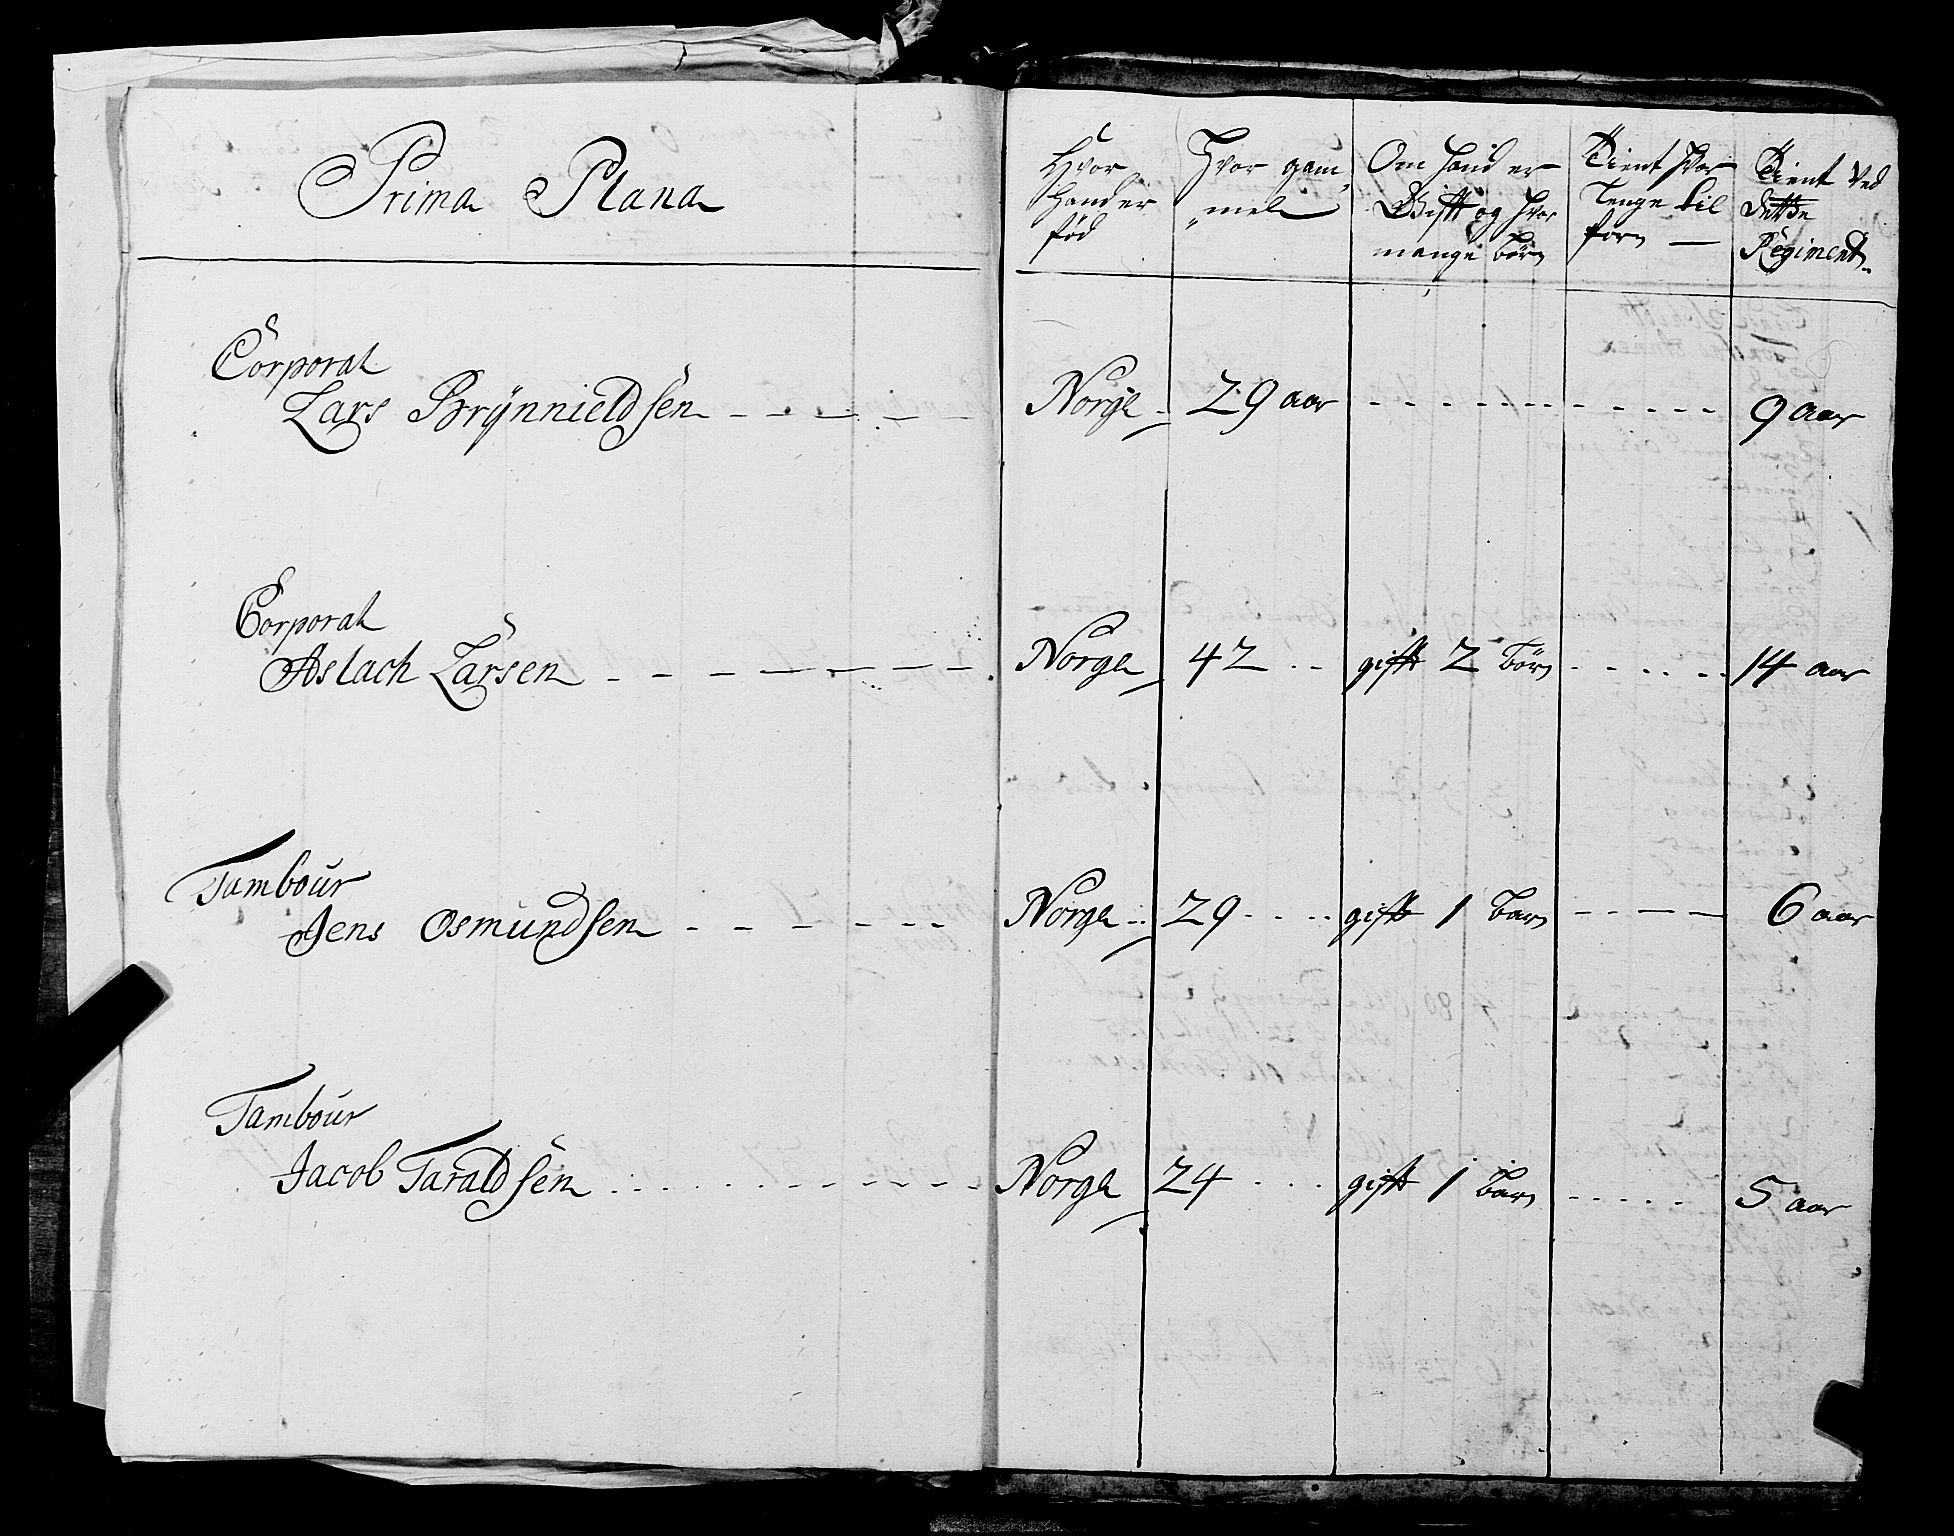 Prima Plana
Hvor Hand er fød
Hvor gammel
Om Hand er Gift og hvor mange børn
Tient hvor Lenge til forn —
Tient ved dette Regiment
Corporal
Lars Brÿnnieldsen - - - - - Norge - 29 aar - - - - - - - - - - - 9 aar
Corporal
Aslach Larsen - - - - - - - Norge 42 - - gift 2 børn - - - - - 14 aar
Tambour
Jens Osmundsen - - - - - - Norge - 29 - - - - gift 1 barn - - - - 6 aar
Tambour
Jacob Taraldsen - - - - - - - Norge 24 - - - gift 1 barn - - - - - 5 aar